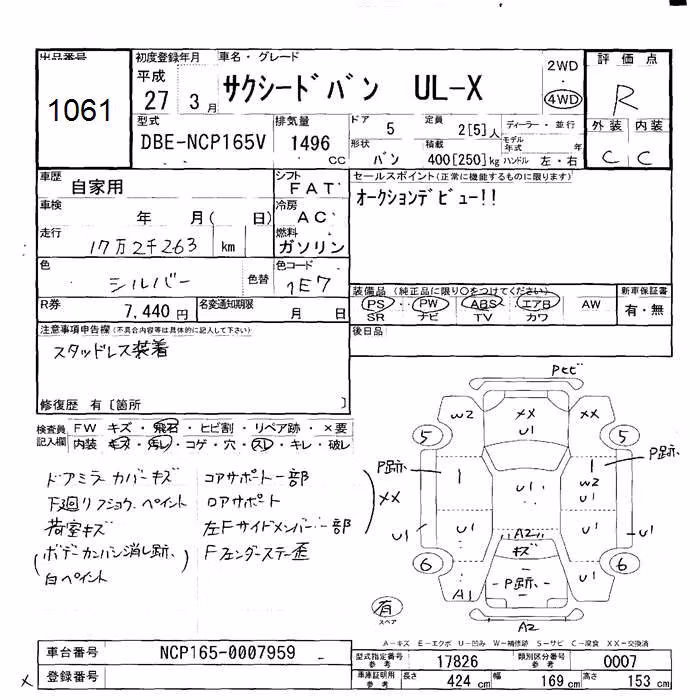 出品番号 初度登録年月 車名・グレード 評価点
1061 平成 27 3月 サクシードバン UL-X 2WD ・ 4WD R
型式 排気量 ドア 5 定員 2[5]人 ディーラー・並行 外装 内装
DBE-NCP165V 1496 CC 形状 バン 積載 400[250]kg モデル年式 年 ハンドル 左・右 C C
車歴 自家用 シフト FAT セールスポイント(正常に機能するものに限ります)
車検 年 月( 日) 冷房 AC オークションデビュー!!
走行 17万2千263 km 燃料 ガソリン
色 シルバー 色替 色コード 1E7
装備品 (純正品に限り○をつけてください) 新車保証書
PS ・ PW ABS エアB AW 有・無
SR ナビ TV カワ
R券 7,440円 名変通知期限 月 日
後日品
注意事項申告欄(不具合内容等は具体的に記入して下さい)
スタッドレス装着
修復歴 有〔箇所 〕
検査員記入欄 FW キズ・飛石・ヒビ割・リペア跡・×要
内装 キズ・汚レ・コゲ・穴・スレ・キレ・破レ
ドアミラーカバーキズ コアサポート一部
下廻リフショク、ペイント ロアサポート
荷室キズ 左Fサイドメンバー一部 XX
(ボデーカンバン消し跡、 Fフェンダーステー歪
白ペイント
Pセビ
W2 XX XX
U1
5 5
P跡、 1 1 P跡、
W2
U1 U1
U1 U1 A2 U1 U1
キズ
6 6
P跡、
A1 U1
有
スペア
A2
A-キズ E-エクボ U-凹み W-補修跡 S-サビ C-腐食 XX-交換済
車台番号 NCP165-0007959 型式指定番号 参考 17826 類別区分番号 参考 0007
× 登録番号 車庫証明用 参考 長さ 424 cm 幅 169 cm 高さ 153 cm